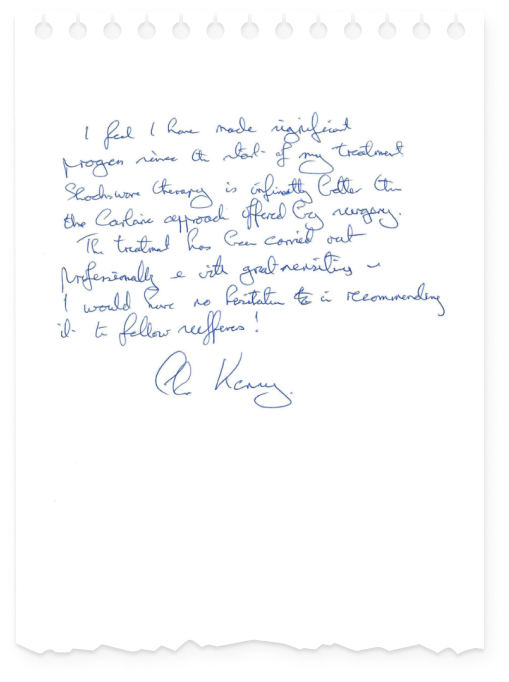 I feel I have made significant
progress since the start of my treatment
Shockwave therapy is infinitely better than
the approach offered by surgery.
The treatment has been carried out
professionally & with great sensitivity
I would have no hesitation in recommending
it to fellow sufferers!
Kenny.